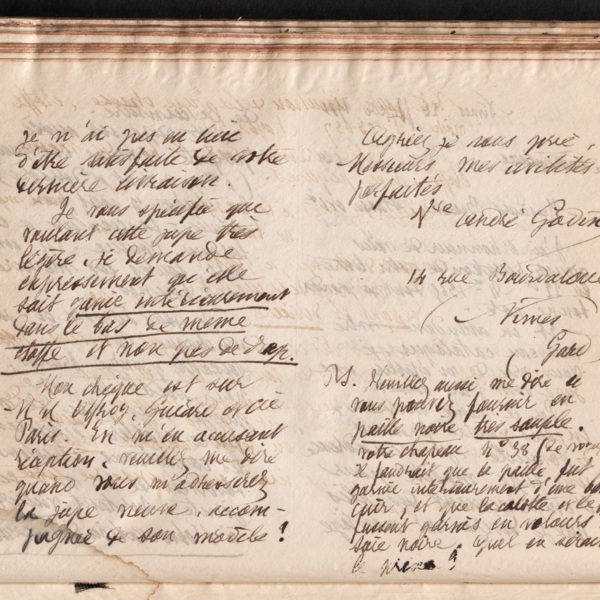 Je n'ai pas eu lieu
d'être satisfaite de votre
dernière livraison.
Je vous spécifie que
voulant cette jupe très
légère, je demande
expressément qu'elle
soit garnie intérieurement
dans le bas de même
étoffe et non pas de drap.
Mon chèque est sur
Paris. En m'en accusant
réception, veuillez me dire
quand vous m'adresserez
la jupe neuve, accom-
pagnée de son modèle?
Agréez je vous prie,
Messieurs mes civilités
parfaites
Vve André Godin
14 rue Bourdaloue
Nimes
Gard
P.S. Veuillez aussi me dire si
vous pouvez fournir en
paille noire très souple.
votre chapeau n° 38
Il faudrait que la paille fut
garnie intérieurement d'une
cuir, et que la calotte
fussent garnis en velours
soie noire. Quel en serait
le prix?